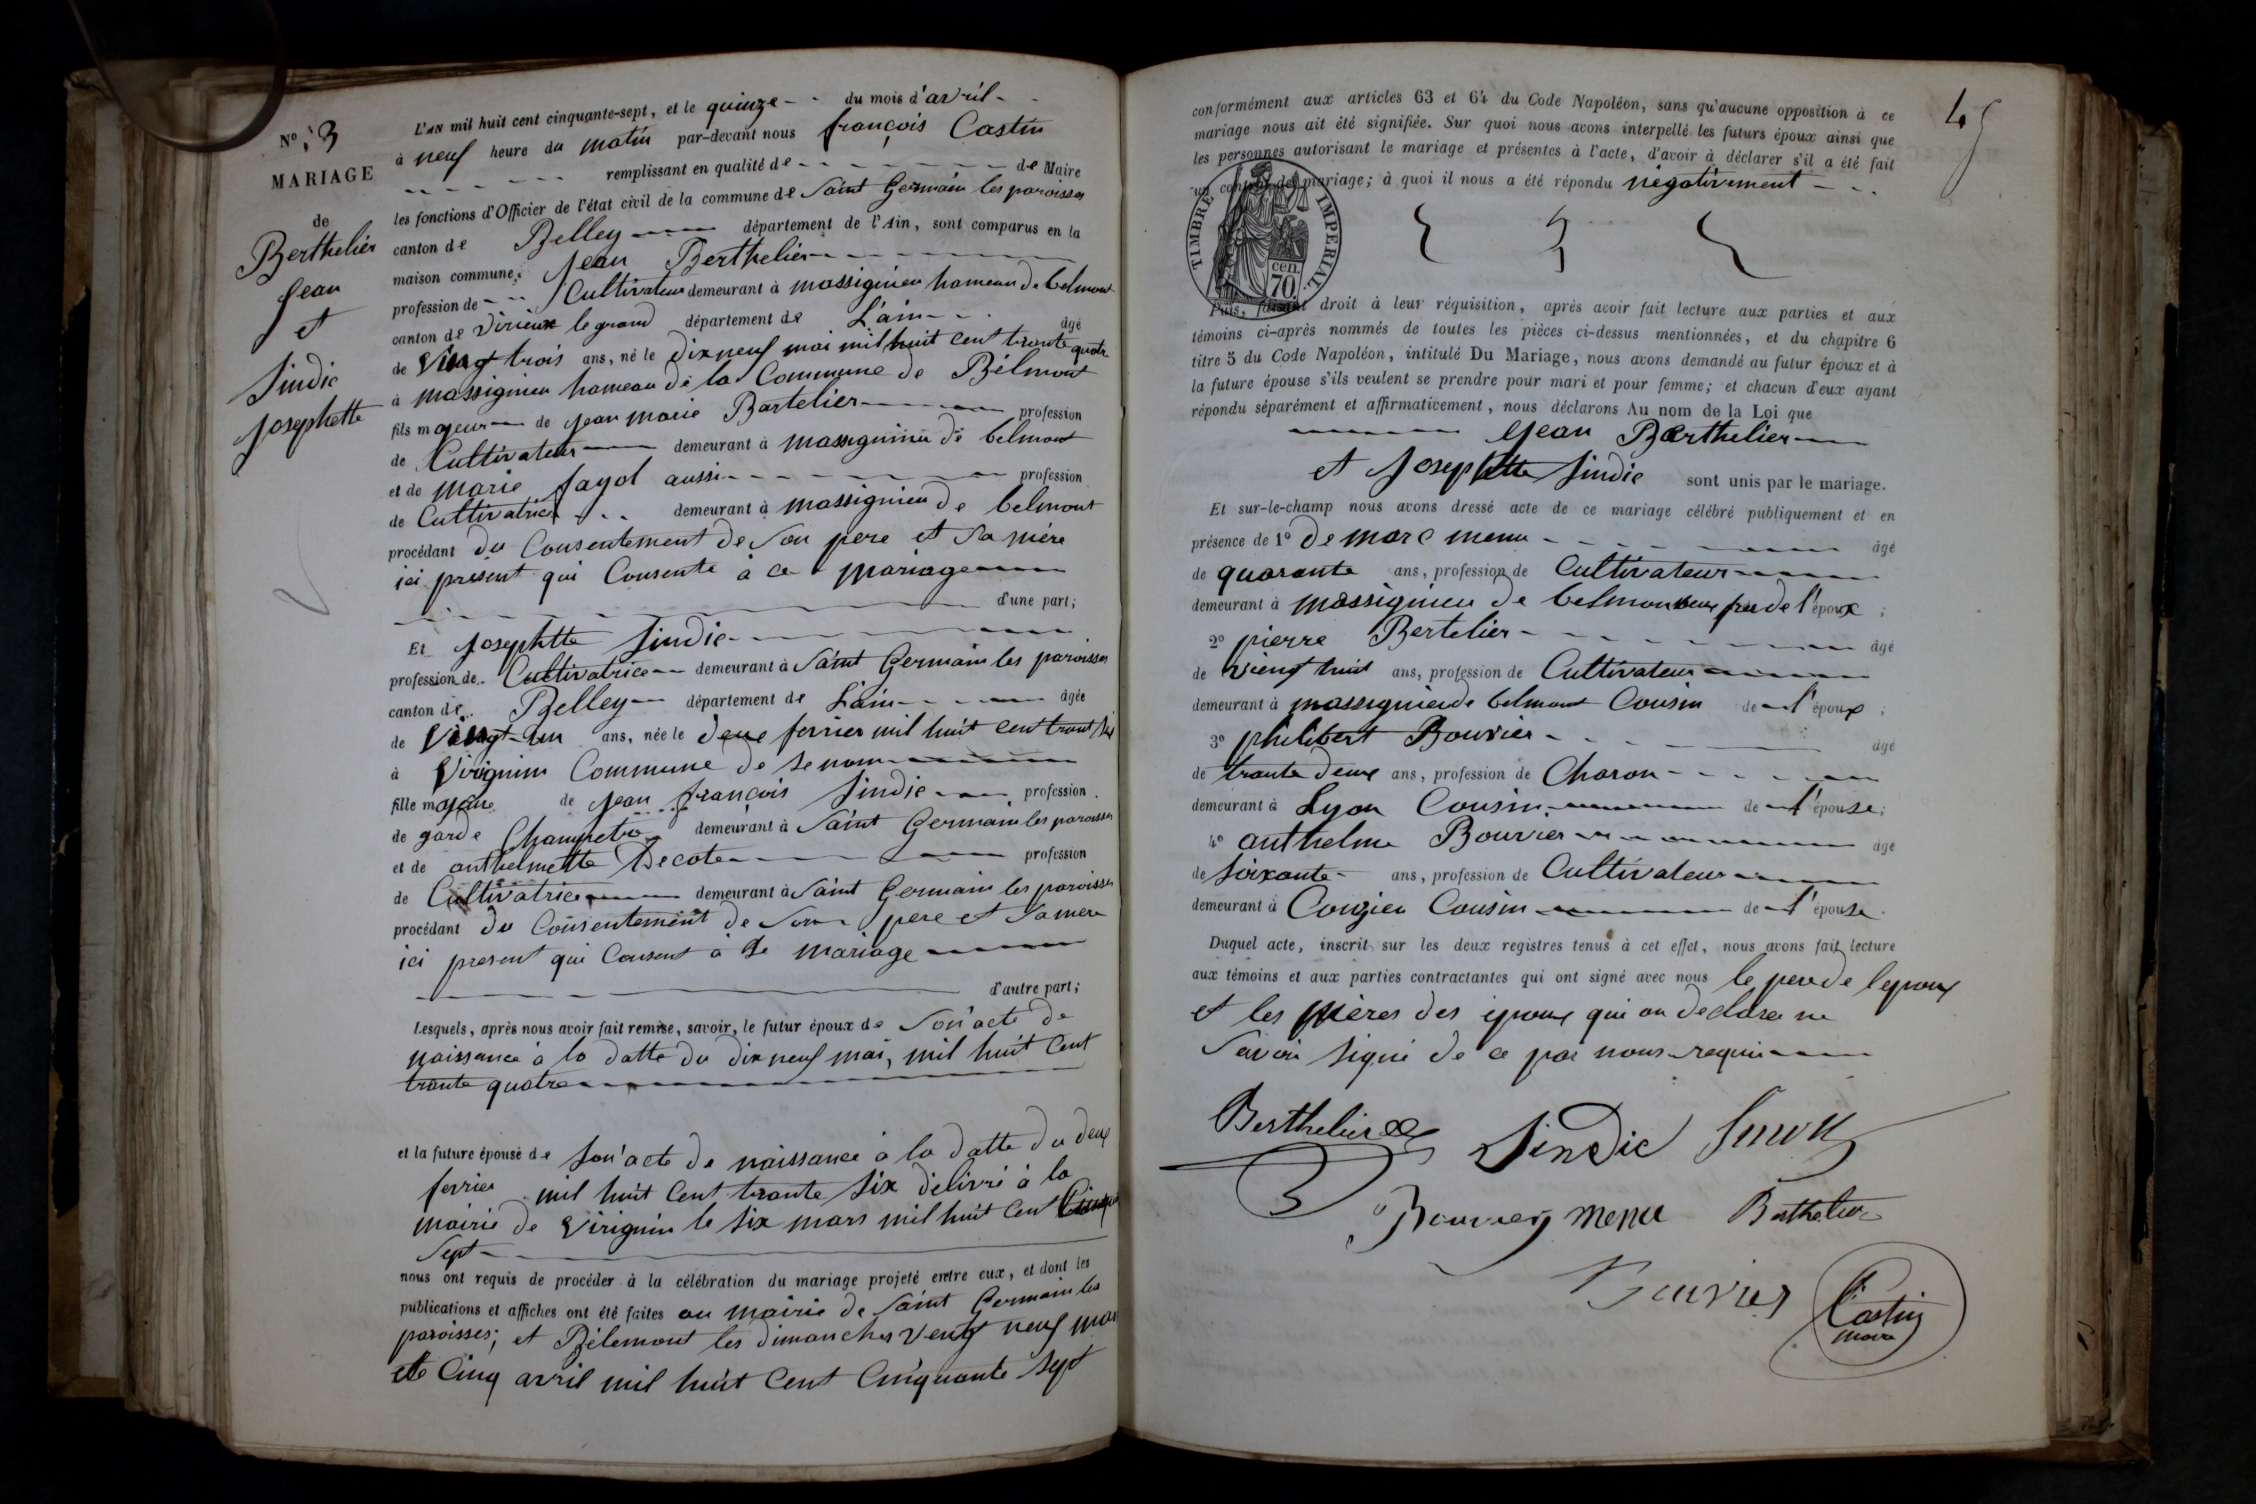 N° 3
MARIAGE
de
Berthelier
Jean
et
Sindic
Josephette
L'AN mil huit cent cinquante-sept, et le quinze du mois d'avril
à neuf heure du matin par-devant nous françois Castin
remplissant en qualité de de Maire
les fonctions d'Officier de l'état civil de la commune de Saint Germain les paroisses
canton de Belley département de l'Ain, sont comparus en la
maison commune: Jean Berthelier
profession de Cultivateur demeurant à massignieu hameau de belmont
canton de Virieux le grand département de L'ain âgé
de Vingt trois ans, né le dix neuf mai mil huit cent trante quatre
à massignieu hameau de la Commune de Bélmont
fils majeur de Jean marie Bartelier profession
de Cultivateur demeurant à massignieu de belmont
et de marie fayol aussi profession
de Cultivatrice demeurant à massignieu de belmont
procédant du Consentement de Son pere et Sa mère
ici present qui Consente à ce mariage
d'une part;
Et Josephtte Sindic
profession de Cultivatrice demeurant à Saint Germain les paroisses
canton de Belley département de L'ain âgée
de Vingt un ans, née le deux ferrier mil huit cent trant Six
à Virignin Commune de Se nom
fille majeure de Jean françois Sindic profession
de garde Champetre demeurant à Saint Germain les paroisses
et de anthelmette Decote profession
de Cultivatrice demeurant à Saint Germain les paroisses
procédant du Consentement de Son pere et Sa mere
ici present qui Consent à Se mariage
d'autre part;
Lesquels, après nous avoir fait remise, savoir, le futur époux de Son acte de
naissance à la datte du dix neuf mai, mil huit Cent
trante quatre
et la future épouse de Son acte de naissance à la datte du deux
ferrier mil huit Cent trante Six délivré à la
mairie de Virignin le Six mars mil huit Cent
Sept
nous ont requis de procéder à la célébration du mariage projeté entre eux, et dont les
publications et affiches ont été faites au mairie de Saint Germain les
paroisses; et Bélemont les dimanches vengt neuf mars
et le Cinq avril mil huit Cent Cinquante Sept
conformément aux articles 63 et 64 du Code Napoléon, sans qu'aucune opposition à ce
mariage nous ait été signifiée. Sur quoi nous avons interpellé les futurs époux ainsi que
les personnes autorisant le mariage et présentes à l'acte, d'avoir à déclarer s'il a été fait
un contrat de mariage; à quoi il nous a été répondu négativement
TIMBRE IMPERIAL
70 cen.
Puis, faisant droit à leur réquisition, après avoir fait lecture aux parties et aux
témoins ci-après nommés de toutes les pièces ci-dessus mentionnées, et du chapitre 6
titre 5 du Code Napoléon, intitulé Du Mariage, nous avons demandé au futur époux et à
la future épouse s'ils veulent se prendre pour mari et pour femme; et chacun d'eux ayant
répondu séparément et affirmativement, nous déclarons Au nom de la Loi que
Jean Berthelier
et Josephtte Sindic sont unis par le mariage.
Et sur-le-champ nous avons dressé acte de ce mariage célébré publiquement et en
présence de 1° De marc menu âgé
de quarante ans, profession de Cultivateur
demeurant à massignieu de belmont de l'époux;
2° pierre Bertelier âgé
de vient huit ans, profession de Cultivateur
demeurant à massignieu de belmont Cousin de l'époux;
3° philibert Bouvier âgé
de trante deux ans, profession de Charon
demeurant à Lyon Cousin de l'épouse;
4° anthelme Bouvier âgé
de Soixante ans, profession de Cultivateur
demeurant à Conzieu Cousin de l'épouse.
Duquel acte, inscrit sur les deux registres tenus à cet effet, nous avons fait lecture
aux témoins et aux parties contractantes qui ont signé avec nous le pere de l'epoux
et les mères des epoux qui on declare ne
Savoir Signé de ce par nous requis
Berthelier
Sindic
Bouvier menu Berthelier
Bouvier
Castin
maire